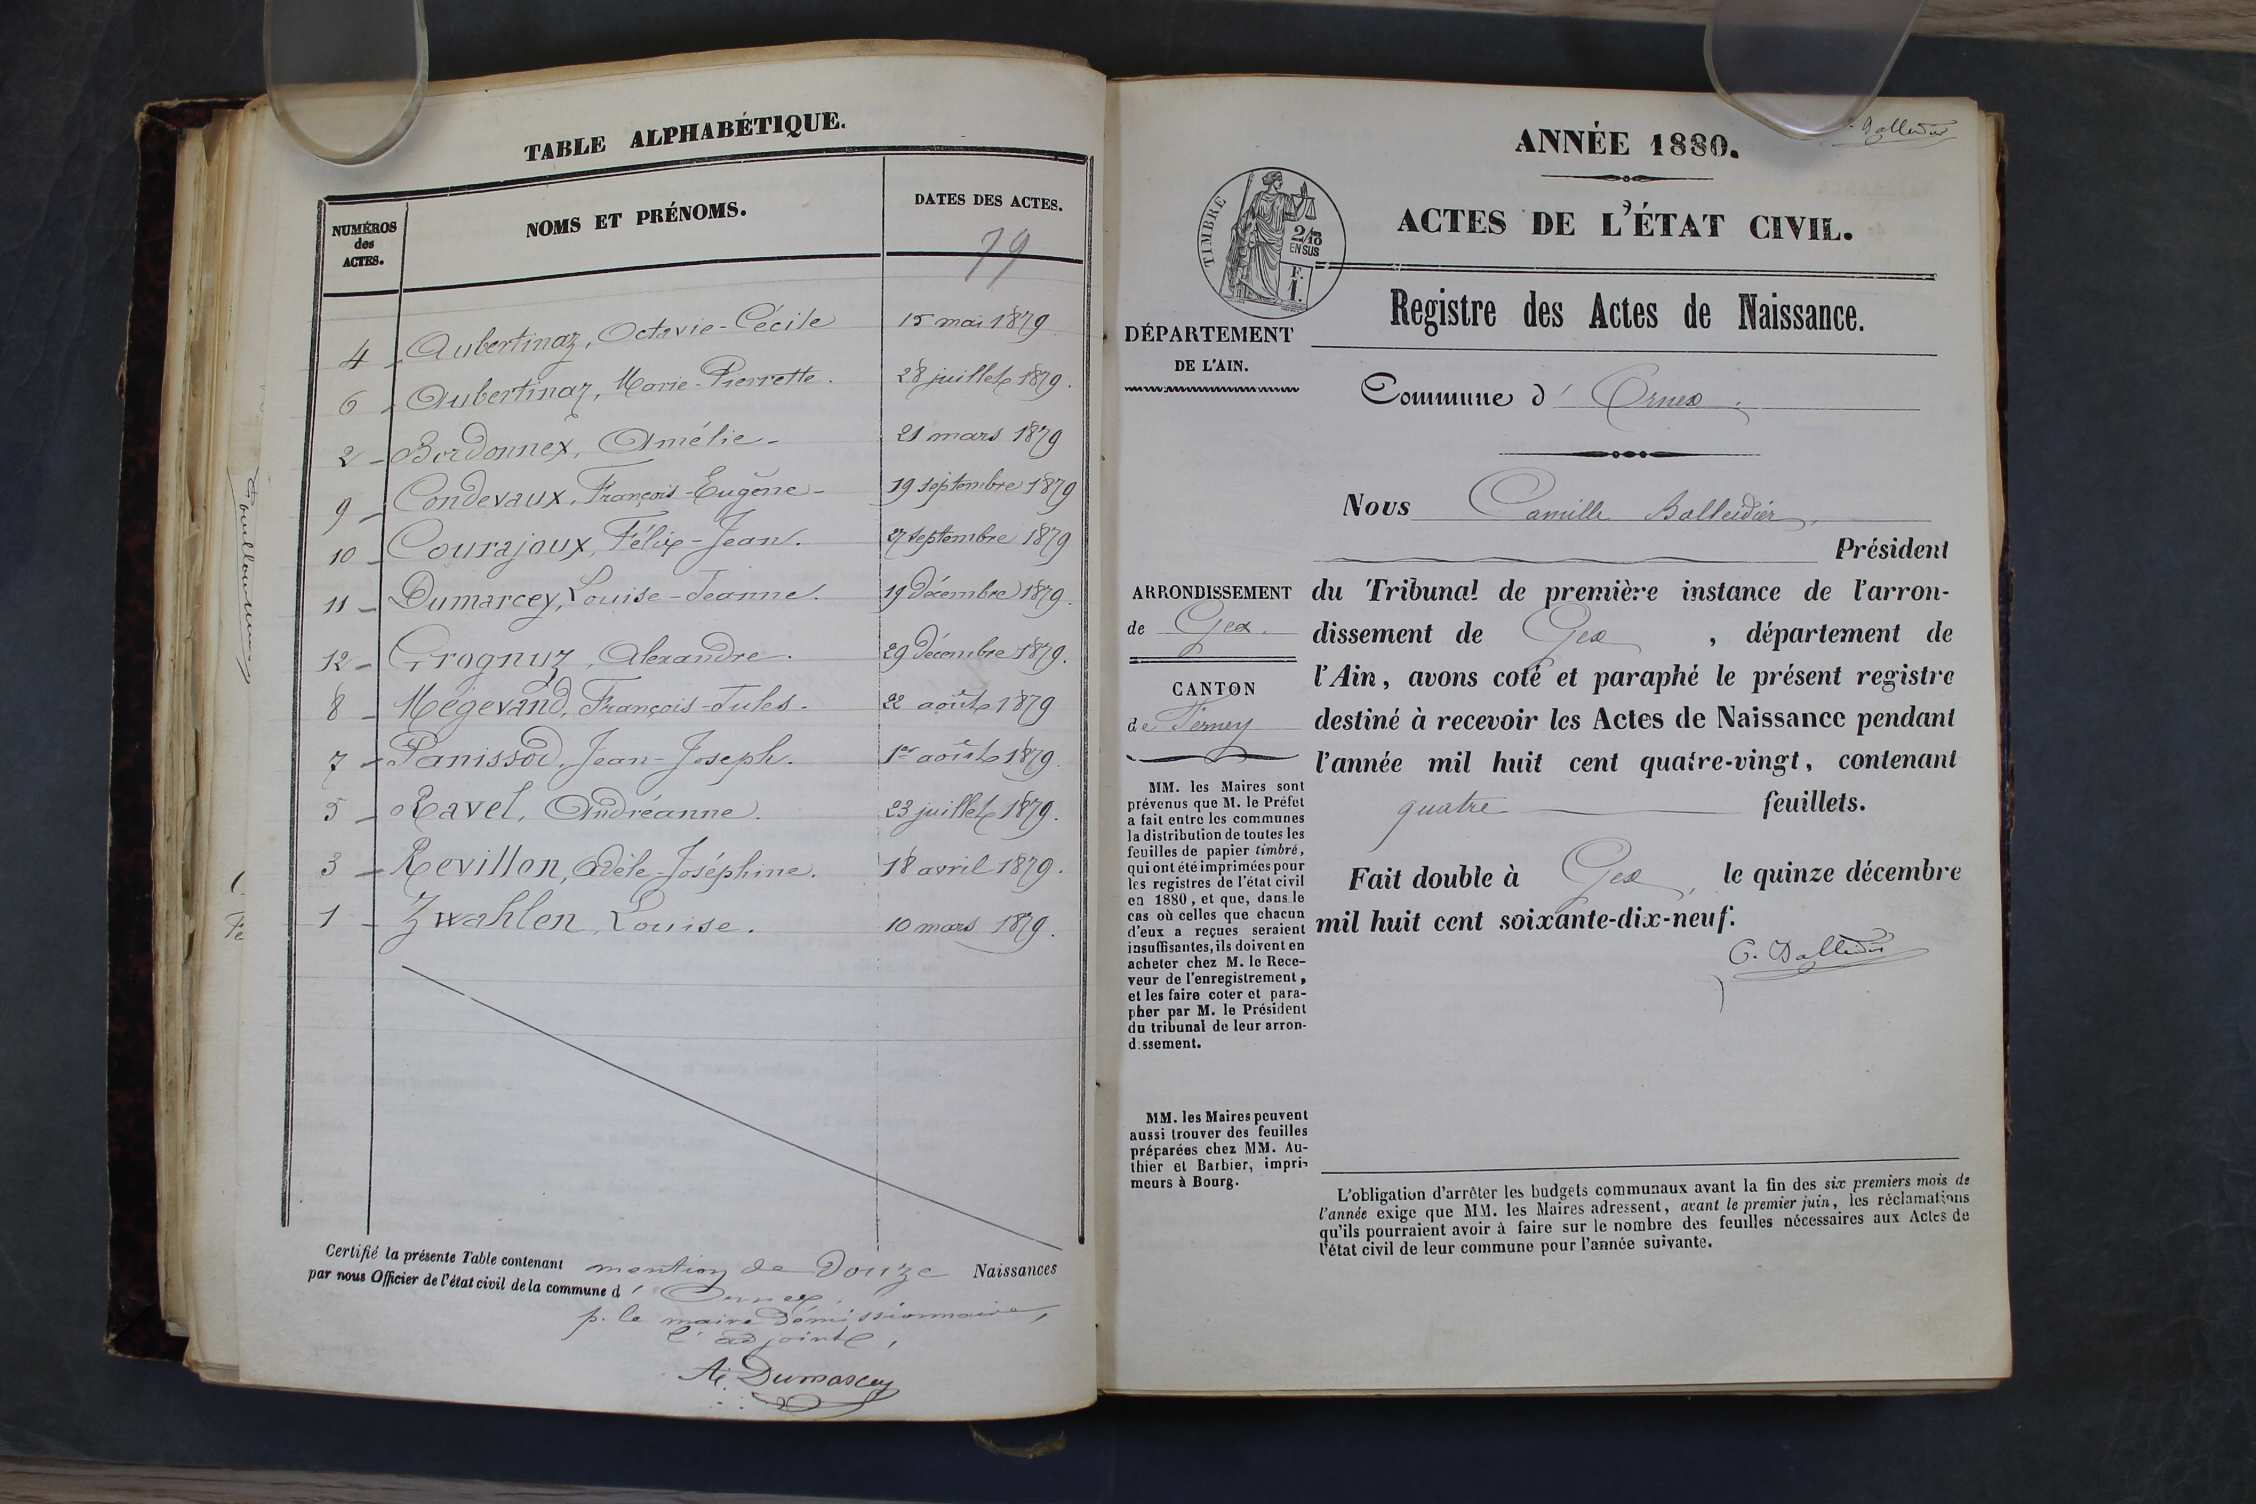 TABLE ALPHABÉTIQUE.
NUMÉROS
des
ACTES.
NOMS ET PRÉNOMS.
DATES DES ACTES.
79
4 - Aubertinaz, Octavie-Cécile 15 mai 1879
6 - Aubertinaz, Marie-Pierrette. 28 juillet 1879.
2 - Bordonnex, Amélie - 21 mars 1879
9 - Condevaux, François-Eugène - 19 septembre 1879
10 - Courajoux, Félix-Jean. 27 septembre 1879
11 - Dumarcey, Louise-Jeanne. 19 Décembre 1879.
12 - Grognuz, Alexandre. 29 Décembre 1879.
8 - Mégevand, François-Jules. 22 août 1879
7 - Panissod, Jean-Joseph. 1er août 1879.
5 - Ravel, Andréanne. 23 juillet 1879.
3 - Revillon, Adèle-Joséphine. 18 avril 1879.
1 - Zwahlen, Louise. 10 mars 1879.
Certifié la présente Table contenant mention de Douze Naissances
par nous Officier de l'état civil de la commune d' Ornex.
p. le maire démissionnaire,
l'adjoint,
A. Dumarcey
ANNÉE 1880.
ACTES DE L'ÉTAT CIVIL.
TIMBRE
2/10
EN SUS
F.
1.
Registre des Actes de Naissance.
DÉPARTEMENT
DE L'AIN.
Commune d' Ornex.
Nous Camille Balleidier,
Président
ARRONDISSEMENT
de Gex.
CANTON
de Ferney
du Tribunal de première instance de l'arron-
dissement de Gex, département de
l'Ain, avons coté et paraphé le présent registre
destiné à recevoir les Actes de Naissance pendant
l'année mil huit cent quatre-vingt, contenant
quatre feuillets.
Fait double à Gex, le quinze décembre
mil huit cent soixante-dix-neuf.
C. Balleidier
MM. les Maires sont
prévenus que M. le Préfet
a fait entre les communes
la distribution de toutes les
feuilles de papier timbré,
qui ont été imprimées pour
les registres de l'état civil
en 1880, et que, dans le
cas où celles que chacun
d'eux a reçues seraient
insuffisantes, ils doivent en
acheter chez M. le Rece-
veur de l'enregistrement,
et les faire coter et para-
pher par M. le Président
du tribunal de leur arron-
dissement.
MM. les Maires peuvent
aussi trouver des feuilles
préparées chez MM. Au-
thier et Barbier, impri-
meurs à Bourg.
L'obligation d'arrêter les budgets communaux avant la fin des six premiers mois de
l'année exige que MM. les Maires adressent, avant le premier juin, les réclamations
qu'ils pourraient avoir à faire sur le nombre des feuilles nécessaires aux Actes de
l'état civil de leur commune pour l'année suivante.